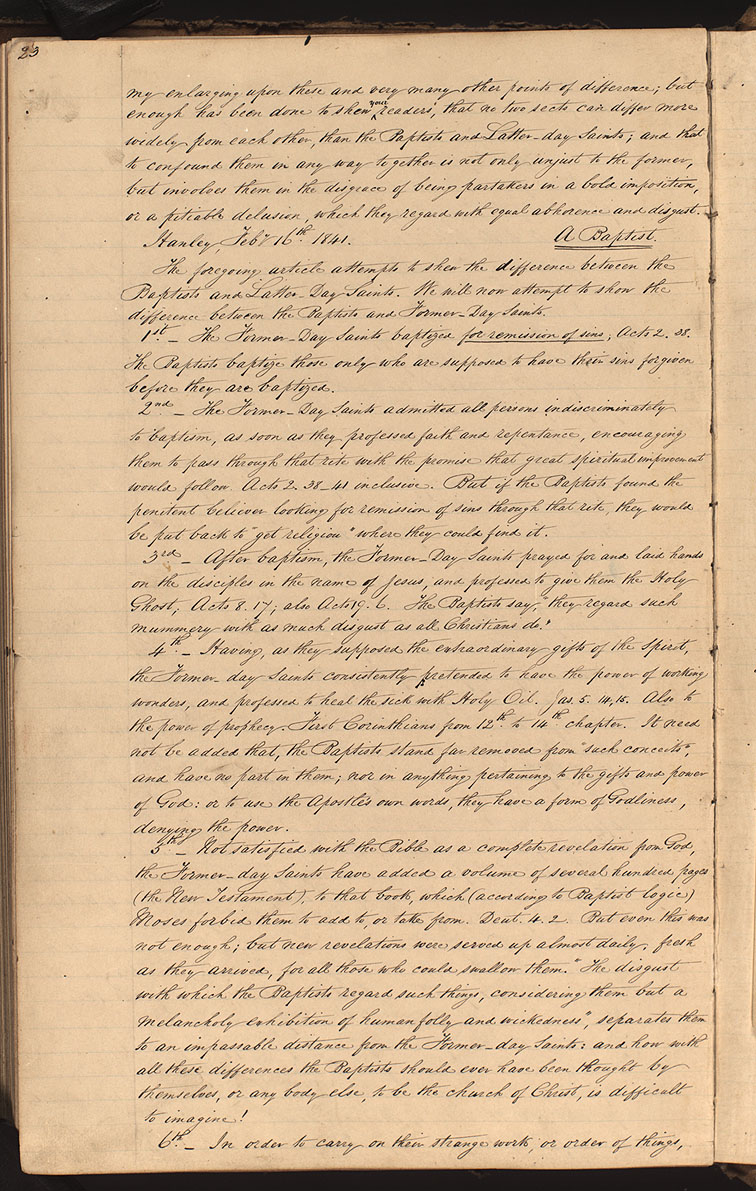 23
my enlarging upon these and very many other points of difference; but
enough has been done to shew your readers, that no two sects can differ more
widely from each other, than the Baptists and Latter-day Saints; and that
to confound them in any way together is not only unjust to the former,
but involves them in the disgrace of being partakers in a bold imposition,
or a pitiable delusion, which they regard with equal abhorence and disgust.
Hanley, Feby 16th 1841. A Baptist.
The foregoing article attempts to shew the difference between the
Baptists and Latter-Day Saints. We will now attempt to show the
difference between the Baptists and Former-Day Saints.
1st – The Former-Day Saints baptized for remission of sins; Acts 2. 38.
The Baptists baptize those only who are supposed to have their sins forgiven
before they are baptized.
2nd – The Former-Day Saints admitted all persons indiscriminately
to baptism, as soon as they professed faith and repentance, encouraging
them to pass through that rite with the promise that great spiritual improvement
would follow. Acts 2. 38-41 inclusive. But if the Baptists found the
penitent believer looking for remission of sins through that rite, they would
be put back to "get religion" where they could find it.
3rd – After baptism, the Former-Day Saints prayed for and laid hands
on the disciples in the name of Jesus, and professed to give them the Holy
Ghost; Acts 8. 17; also Acts 19. 6. The Baptists say, "they regard such
mummery with as much disgust as all Christians do."
4th – Having, as they supposed the extraordinary gifts of the Spirit,
the Former-day Saints consistently pretended to have the power of working
wonders, and professed to heal the sick with Holy Oil. Jas. 5. 14, 15. Also to
the power of prophecy. First Corinthians from 12th to 14th chapter. It need
not be added that, the Baptists stand far removed from "such conceits",
and have no part in them; nor in anything pertaining to the gifts and power
of God: or to use the Apostle's own words, they have a form of Godliness,
denying the power.
5th – Not satisfied with the Bible as a complete revelation from God,
the Former-day Saints have added a volume of several hundred pages
(the New Testament), to that book, which (according to Baptist logic)
Moses forbid them to add to, or take from. Deut. 4. 2. But even this was
not enough; but new revelations were served up almost daily, fresh
as they arrived, for all those who could swallow them." The disgust
with which the Baptists regard such things, considering them but a
melancholy exhibition of human folly and wickedness", separates them
to an impassable distance from the Former-day Saints: and how with
all these differences the Baptists should ever have been thought by
themselves, or any body else, to be the church of Christ, is difficult
to imagine!
6th – In order to carry on their strange work, or order of things,